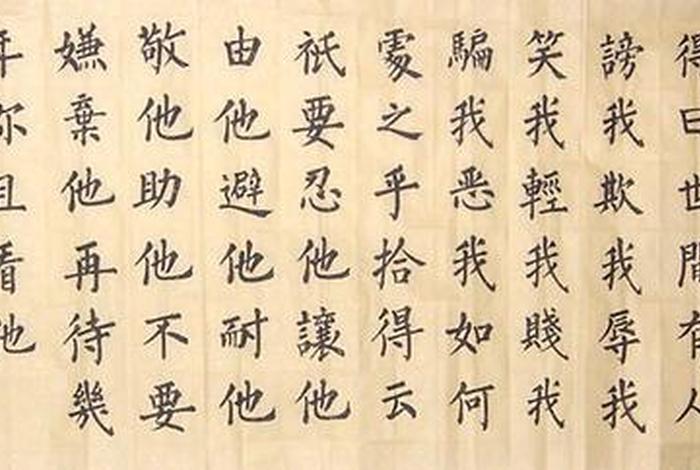 得曰世間有人
謗我欺我辱我
笑我輕我賤我
騙我恶我如何
處之乎拾得云
祇要忍他讓他
由他避他耐他
敬他助他不要
嫌棄他再待幾
年你且看他